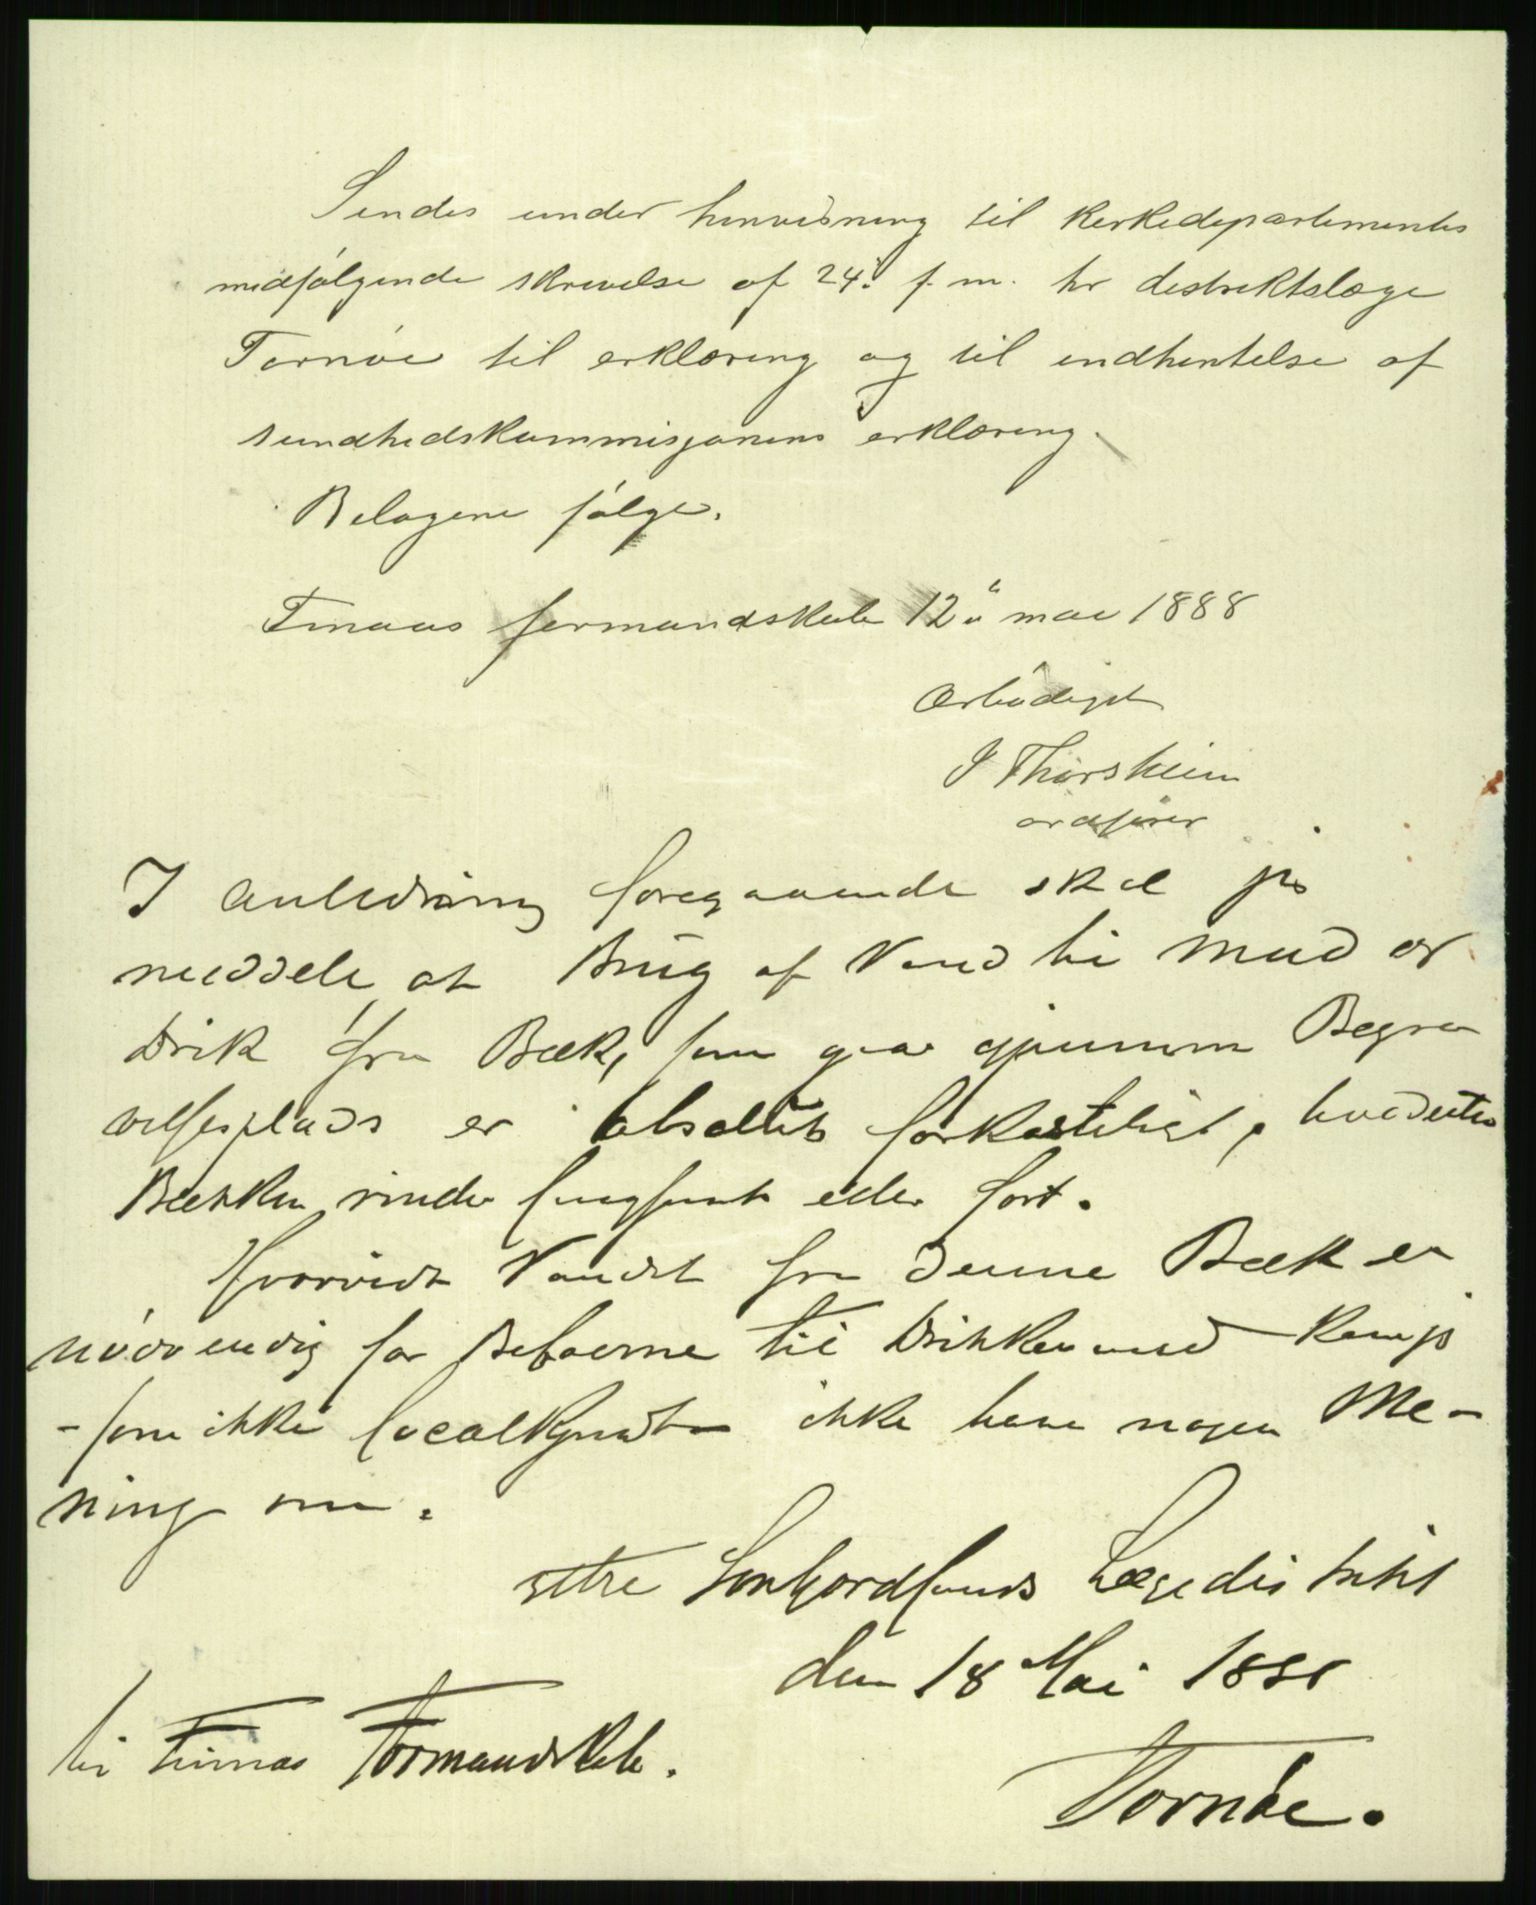 Sendes under henvisning til kirkedepartementets
medfølgende skrivelse af 24: f. m. hr distriktslæge
Tornøe til erklæring og til indhentelse af
sundhedskommisjonens erklæring.
Bilagene følge.
Finaas formandskab 12 mai 1888
Ærbødigst
J Thorsheim
ordfører
I Anledning foregaaende skal jeg
meddele at Brug af Vand til Mad og
Drik fra Bæk, som gaar gjennem Begra
velsesplads er absolut forkasteligt, hvadenten
Bækken rinder langsomt eller fort.
Hvorvidt Vandet fra denne Bæk er
nødvendig for Beboerne til Drikkevand kan jeg
- som ikke localkjendt ikke have nogen Me-
ning om.
ytre Søndhordlands Lægedistrikt
den 18 Mai 1888
til Finnaas Formandskab.
Tornøe.